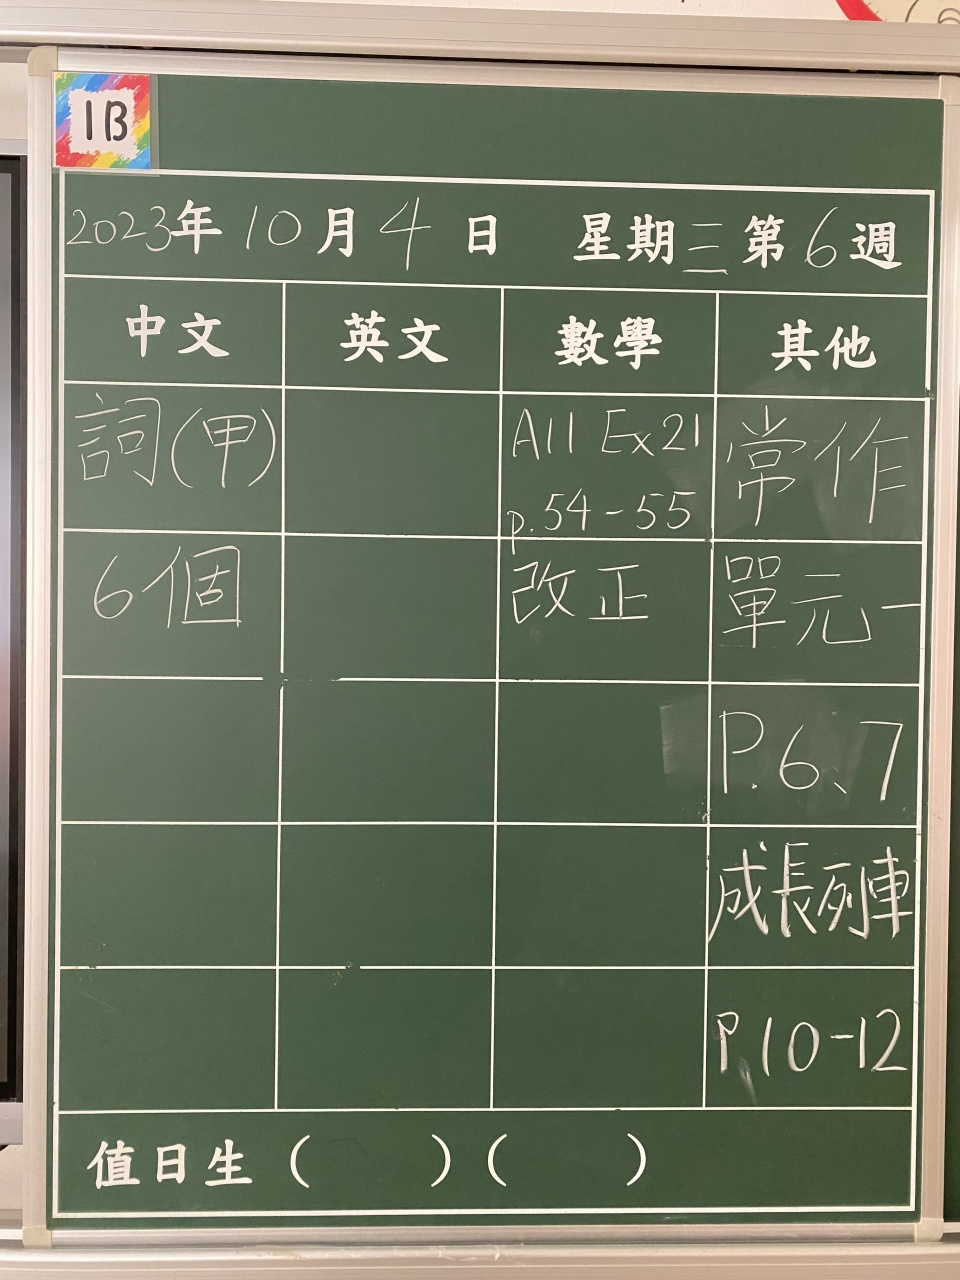 1B
2023年10月4日 星期三第6週
中文 英文 數學 其他
詞(甲) A11 Ex21 常作
p.54-55
6個 改正 單元一
P.6、7
成長列車
P.10-12
值日生( )( )